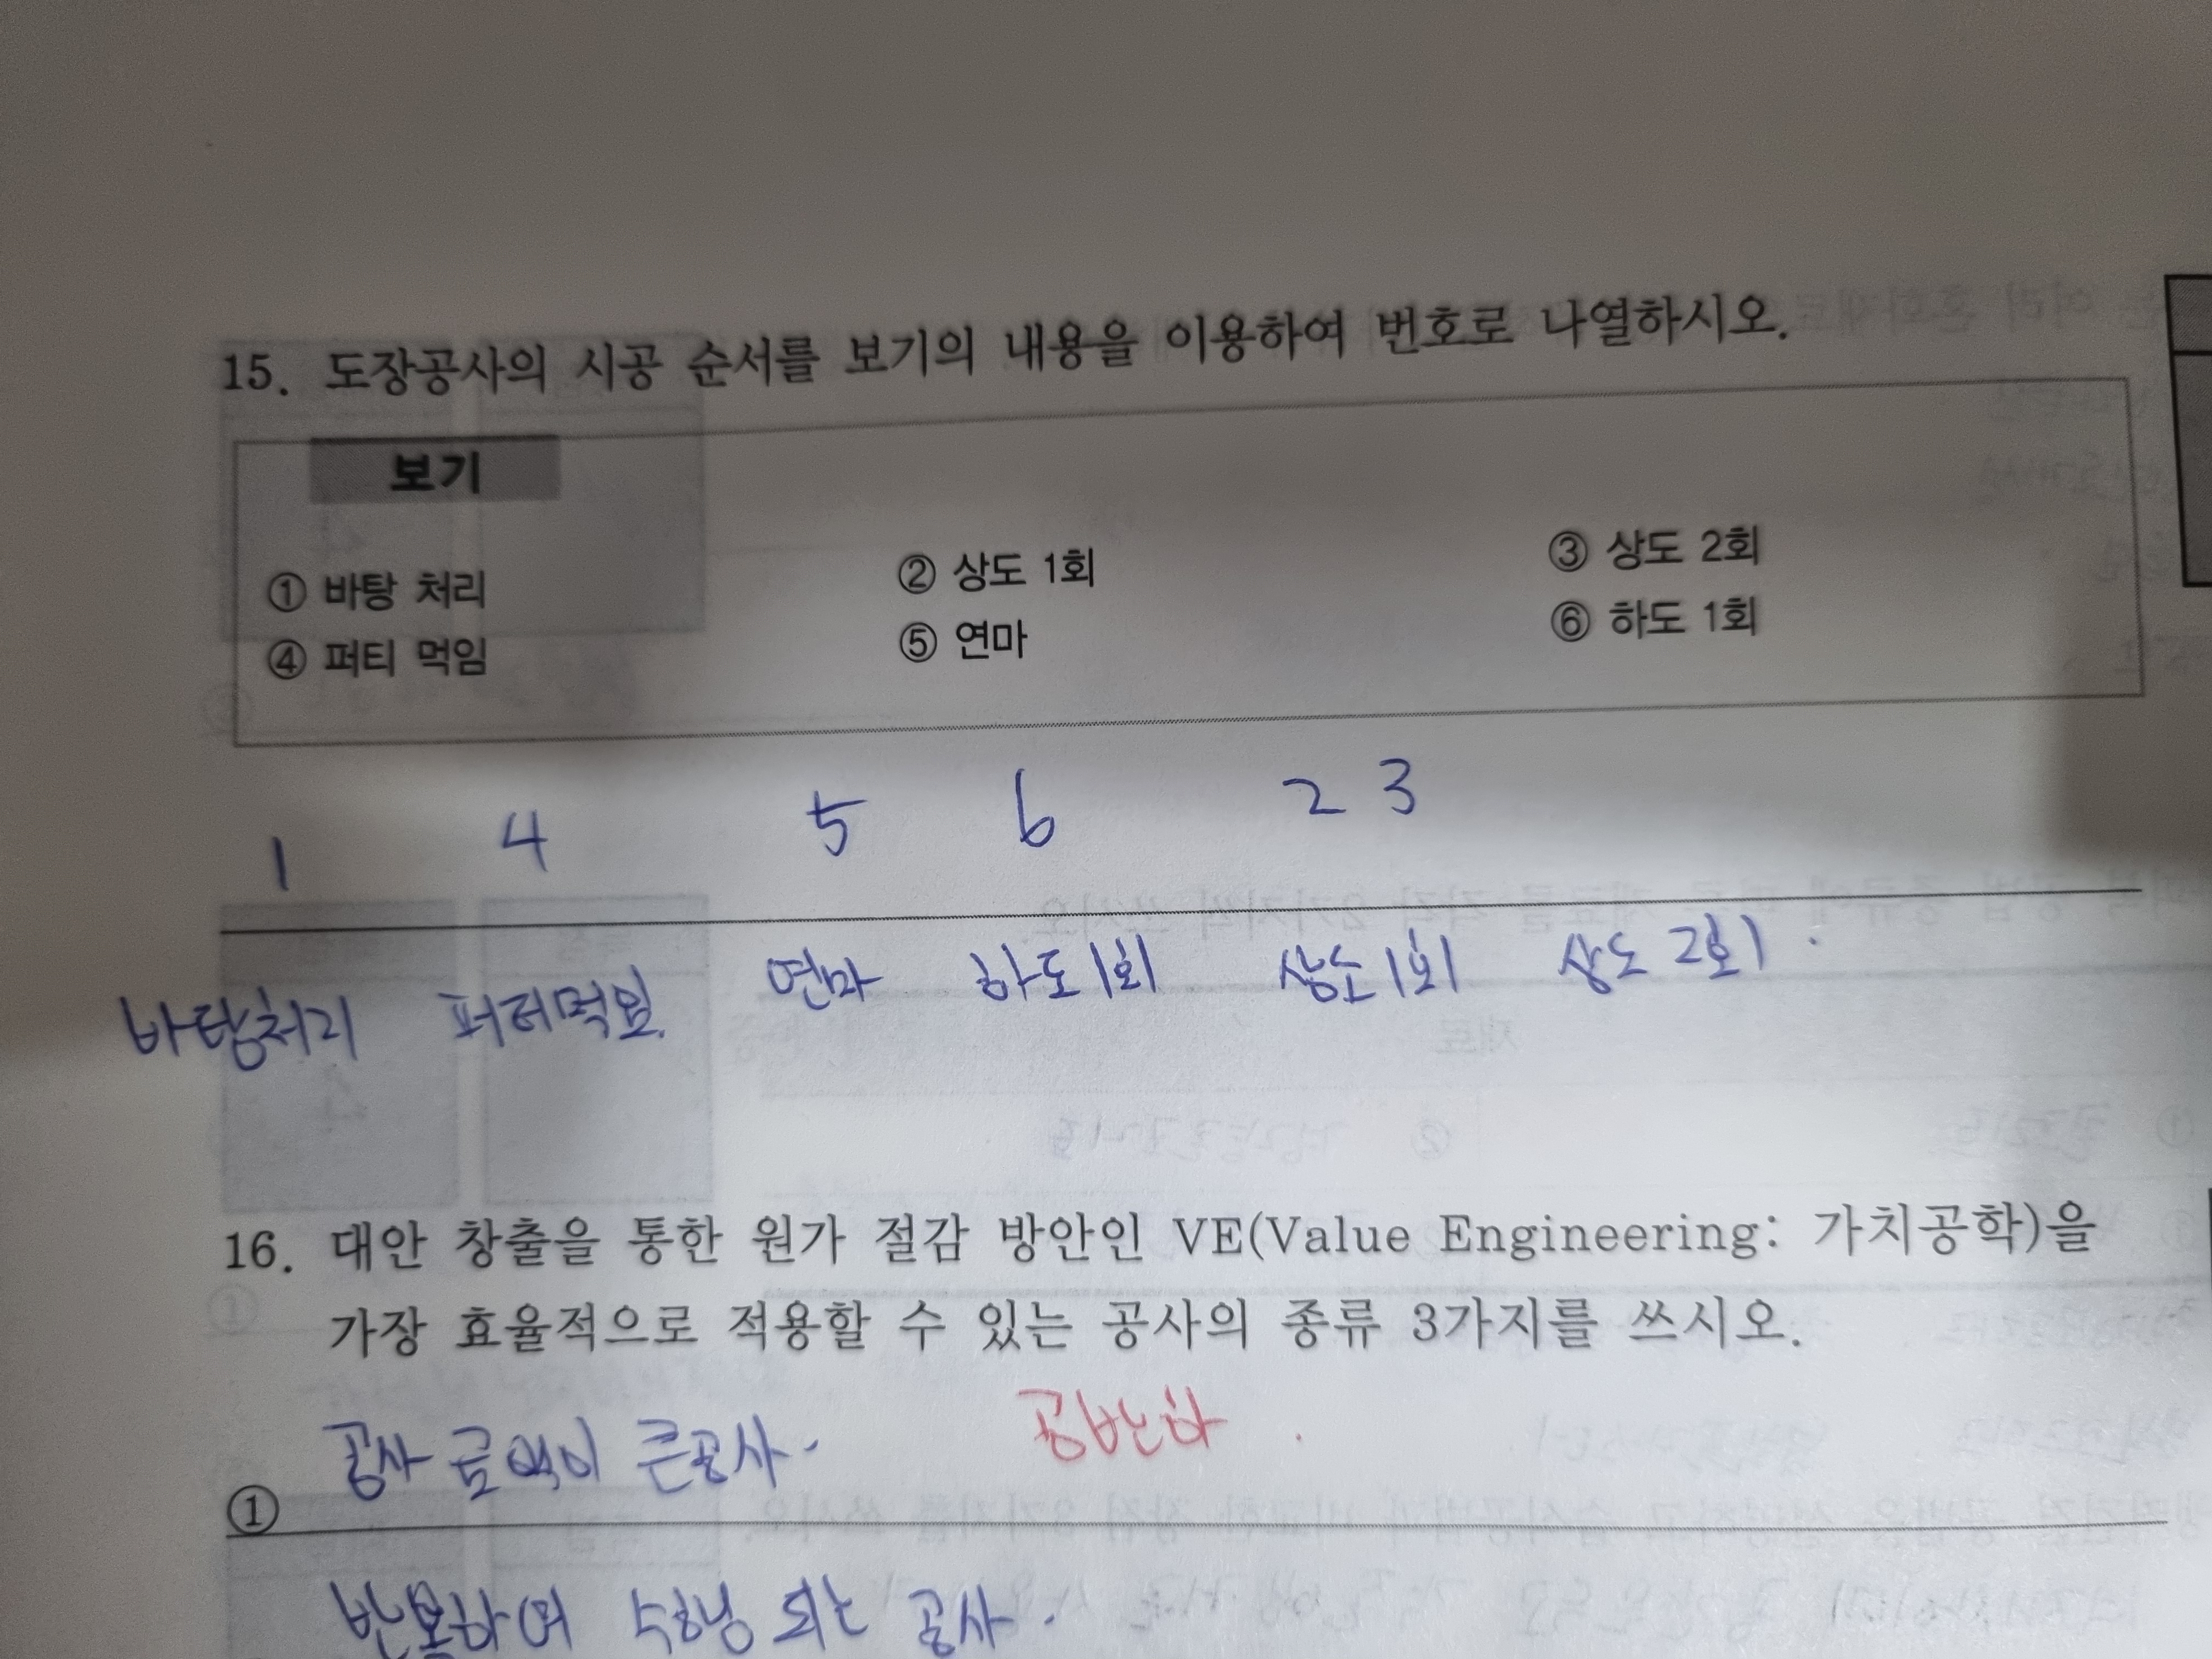 15. 도장공사의 시공 순서를 보기의 내용을 이용하여 번호로 나열하시오.
보기
① 바탕 처리 ② 상도 1회 ③ 상도 2회
④ 퍼티 먹임 ⑤ 연마 ⑥ 하도 1회
1 4 5 6 2 3
바탕처리 퍼티먹임 연마 하도1회 상도1회 상도2회.
16. 대안 창출을 통한 원가 절감 방안인 VE(Value Engineering: 가치공학)을
가장 효율적으로 적용할 수 있는 공사의 종류 3가지를 쓰시오.
공반하.
① 공사 금액이 큰공사.
반복하여 수행 되는 공사.